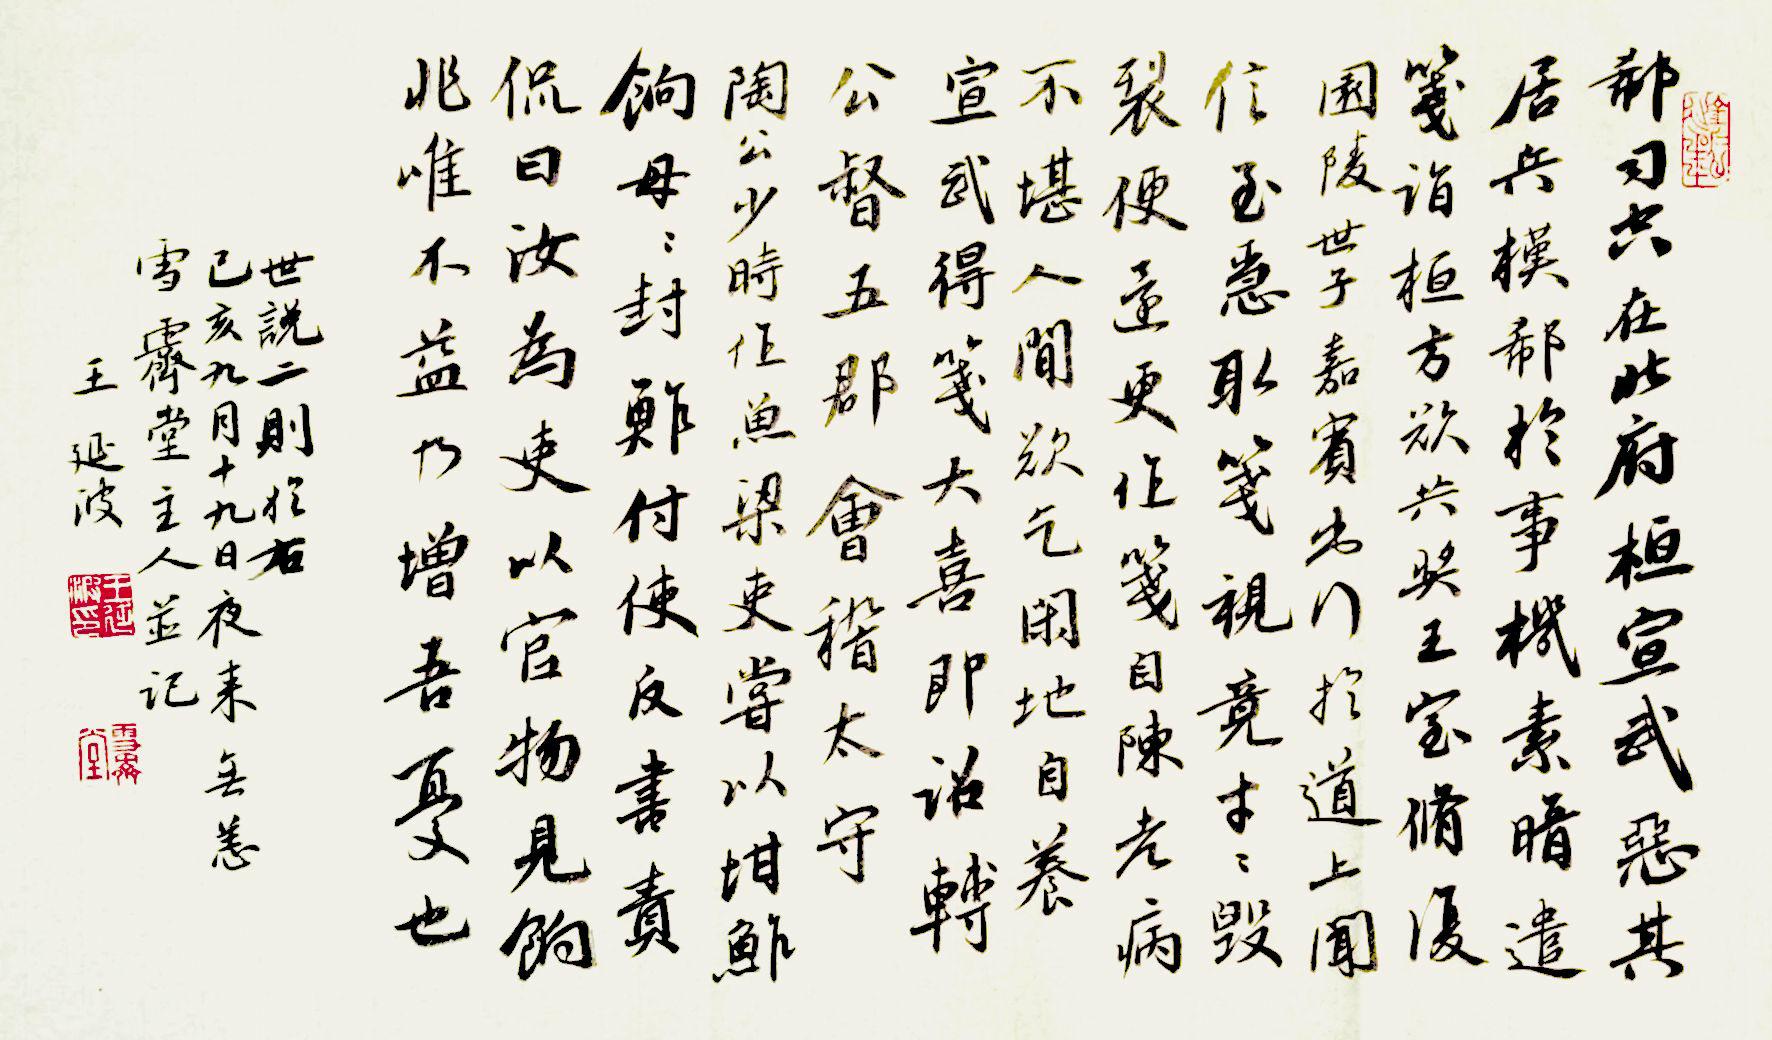 郗司空在北府桓宣武惡其
居兵權郗於事機素暗遣
箋詣桓方欲共獎王室脩復
園陵世子嘉賓出行於道上聞
信至急取箋視竟寸〻毀
裂便還更作箋自陳老病
不堪人間欲乞閑地自養
宣武得箋大喜即詔轉
公督五郡會稽太守
陶公少時作魚梁吏嘗以坩鮓
餉母〻封鮓付使反書責
侃曰汝為吏以官物見餉
非唯不益乃增吾憂也
世説二則於右
己亥九月十九日夜来無恙
雪霽堂主人並記
王延波
王延波印
雪霽堂